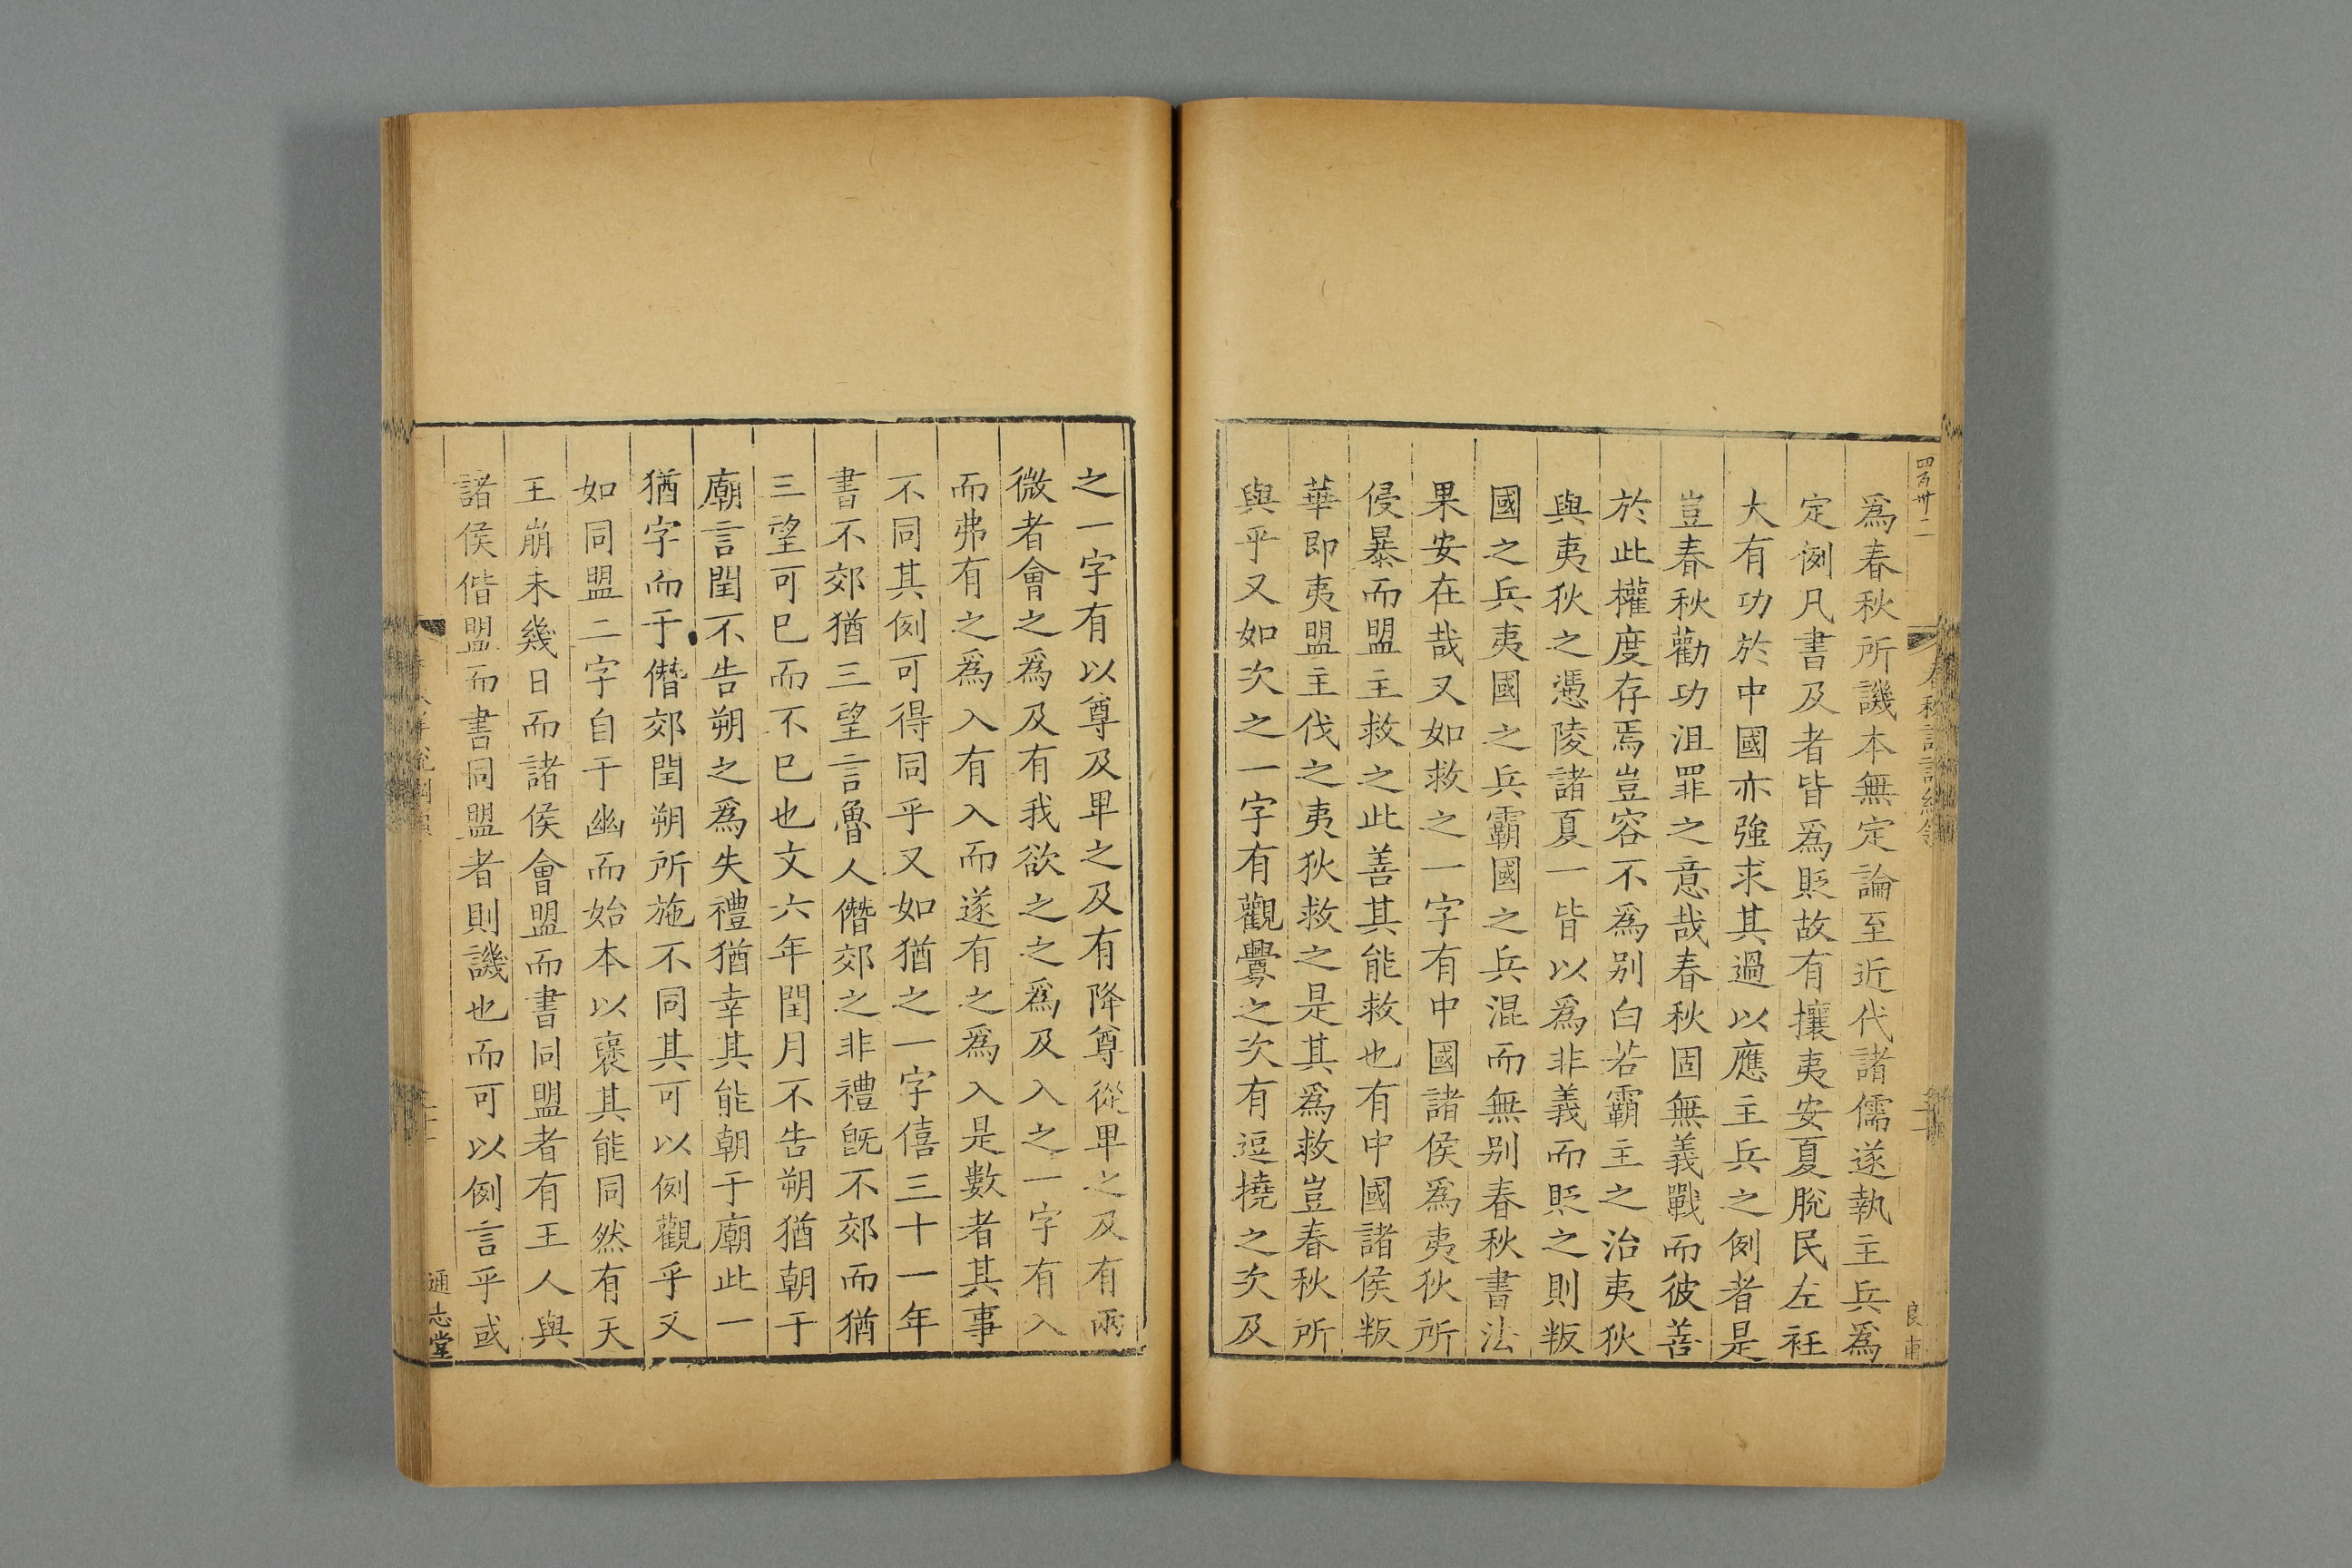 四百卅二
爲春秋所譏本無定論至近代諸儒遂執主兵爲
定例凡書及者皆爲貶故有攘夷安夏脫民左衽
大有功於中國亦強求其過以應主兵之例者是
豈春秋勸功沮罪之意哉春秋固無義戰而彼善
於此權度存焉豈容不爲別白若霸主之治夷狄
與夷狄之憑陵諸夏一皆以爲非義而貶之則叛
國之兵夷國之兵霸國之兵混而無別春秋書法
果安在哉又如救之一字有中國諸侯爲夷狄所
侵暴而盟主救之此善其能救也有中國諸侯叛
華即夷盟主伐之夷狄救之是其爲救豈春秋所
與乎又如次之一字有觀釁之次有逗撓之次及
之一字有以尊及卑之及有降尊從卑之及有兩
微者會之爲及有我欲之之爲及入之一字有入
而弗有之爲入有入而遂有之爲入是數者其事
不同其例可得同乎又如猶之一字僖三十一年
書不郊猶三望言魯人僭郊之非禮旣不郊而猶
三望可巳而不巳也文六年閏月不告朔猶朝于
廟言閏不告朔之爲失禮猶幸其能朝于廟此一
猶字而于僭郊閏朔所施不同其可以例觀乎又
如同盟二字自于幽而始本以褒其能同然有天
王崩未幾日而諸侯會盟而書同盟者有王人與
諸侯偕盟而書同盟者則譏也而可以例言乎或
通志堂